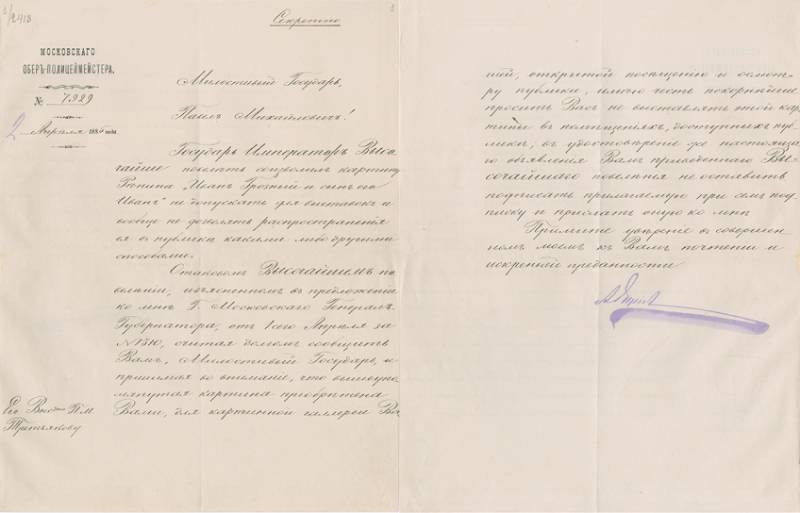 1/2413
Секретно
МОСКОВСКАГО
ОБЕРЪ-ПОЛИЦЕЙМЕЙСТЕРА.
№ 7929
2 Апрѣля 1885 года
Милостивый Государь,
Павелъ Михайловичъ!
Государь Императоръ Высо
чайше повелѣть соизволилъ картину
Рѣпина „Иванъ Грозный и сынъ его
Иванъ" не допускать для выставокъ и
вообще не дозволять распространенія
ея въ публикѣ какими либо другими
способами.
О таковомъ Высочайшемъ по
велѣніи, изъясненномъ въ предложеніи
ко мнѣ Г. Московскаго Генералъ-
Губернатора, отъ 1 сего Апрѣля за
№ 1510, считая долгомъ сообщить
Вамъ, Милостивый Государь, и
принимая во вниманіе, что вышеупо
мянутая картина пріобрѣтена
Вами, для картинной галлереи Ва
Его Высо П.М.
Третьякову
шей, открытой посѣщенію и осмот-
ру публики, имѣю честь покорнѣйше
просить Васъ не выставлять этой кар
тины въ помѣщеніяхъ, доступныхъ пуб
ликѣ, въ удостовѣреніе же настояща
го объявленія Вамъ приведеннаго Вы
сочайшаго повелѣнія не оставить
подписать прилагаемую при семъ под
писку и прислать оную ко мнѣ
Примите увѣреніе въ совершен
номъ моемъ къ Вамъ почтеніи и
искренней преданности